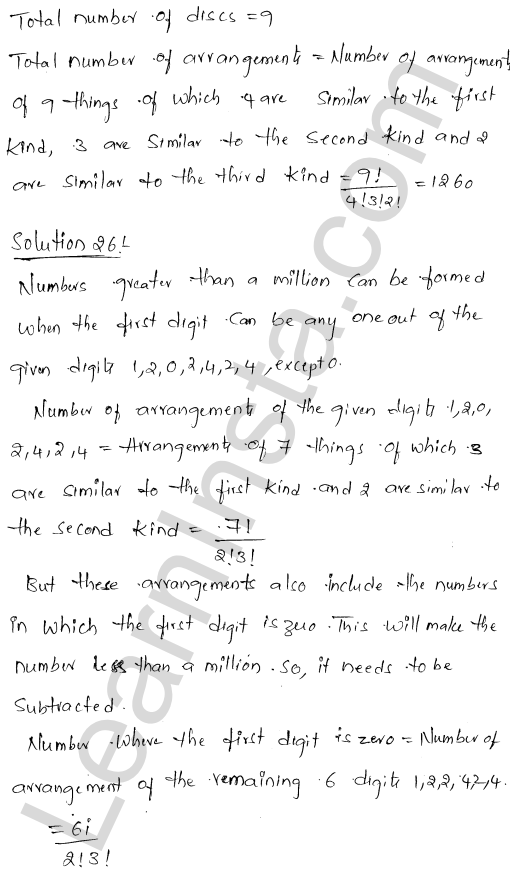 Total number of discs = 9
Total number of arrangements = Number of arrangements
of 9 things of which 4 are similar to the first
kind, 3 are similar to the second kind and 2
are similar to the third kind = 9!/4!3!2! = 1260
Solution 26:
Numbers greater than a million can be formed
when the first digit can be any one out of the
given digits 1,2,0,2,4,2,4, except 0.
Number of arrangements of the given digits 1,2,0,
2,4,2,4 = Arrangements of 7 things of which 3
are similar to the first kind and 2 are similar to
the second kind = 7!/2!3!
But these arrangements also include the numbers
in which the first digit is zero. This will make the
number less than a million. So, it needs to be
subtracted.
Number where the first digit is zero = Number of
arrangement of the remaining 6 digits 1,2,2,4,2,4.
= 6!/2!3!
LearnInsta.com